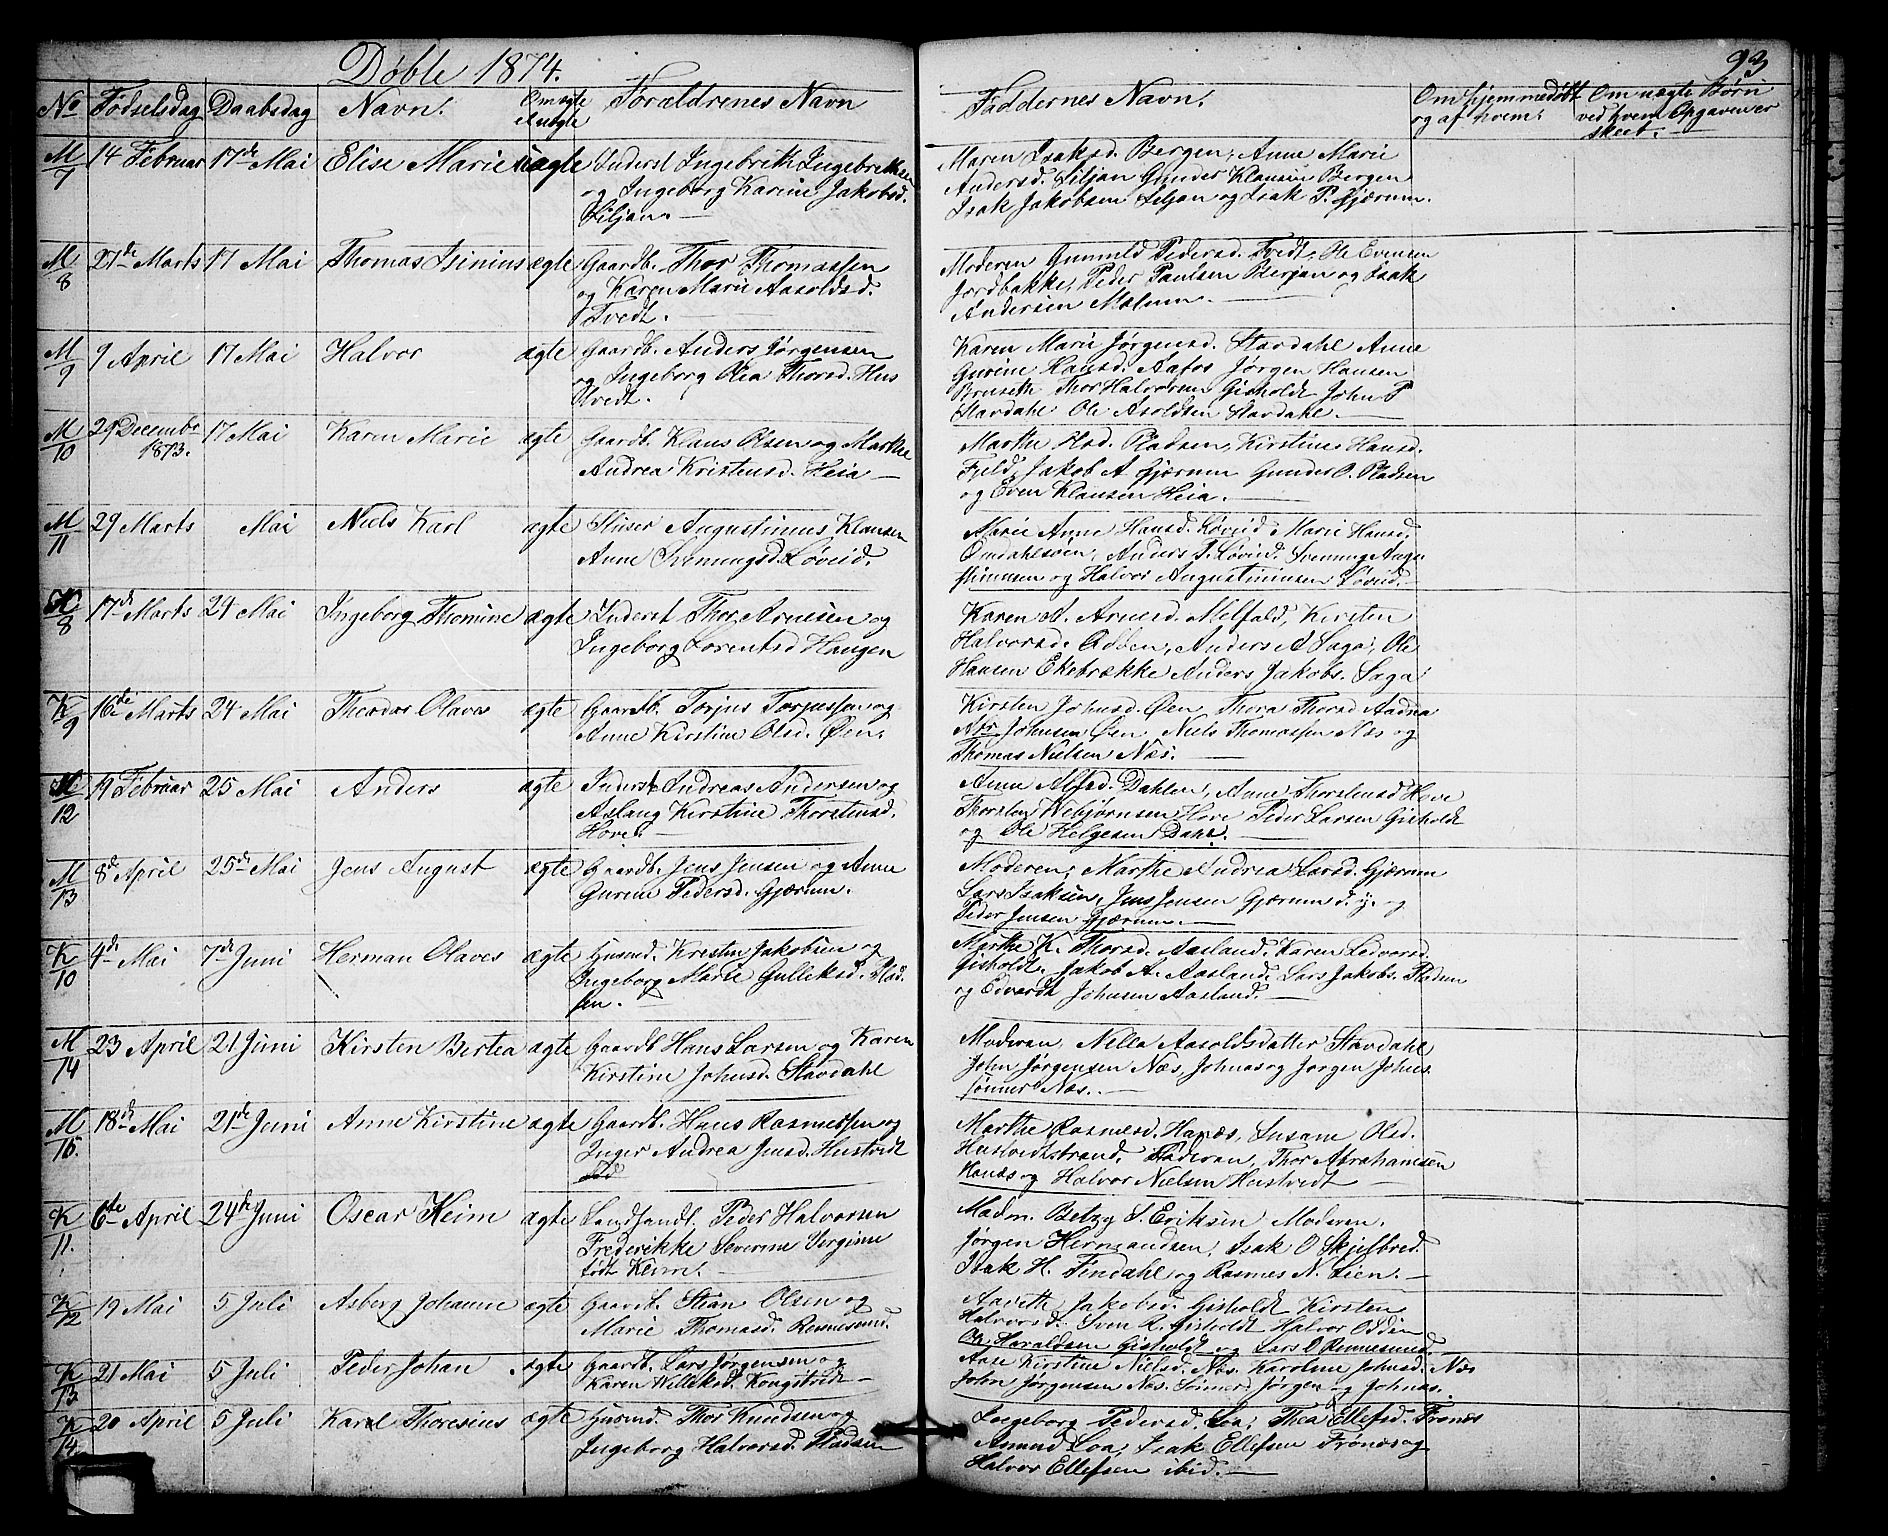 Døbte 1874.
93
No Fødselsdag Daabsdag Navn. Om ægte Forældrenes Navn Faddernes Navn. Om hjemmedøbt og af hvem. Om uægte Børn ved hvem Opgaven er skeet.
M/7 14 Februar 17de Mai Elise Marie uægte Inderst Ingebrikt Ingebriktsen
og Ingeborg Karine Jakobsd.
Siljan. —
Maren Isaksd. Bergen, Anne Marie
Andersd. Siljan Gunder Klausen Bergen
Isak Jakobsen Siljan og Isak P. Gjærum.
M/8 27de Marts 17 Mai Thomas Isinius ægte Gaardb. Thor Thomassen
og Karen Marie Aasoldsd.
Tvedt.
Moderen Gunnild Pedersd. Tvedt, Ole Evensen
Jordbakke, Peder Paulsen Bergan og Isak
Andersen Malum. —
M/9 9 April 17 Mai Halvor ægte Gaardb. Anders Jørgensen
og Ingeborg Olea Thorsd. Hus
tvedt.
Karen Marie Jørgensd. Stavdahl Anne
Gurine Hansd. Aafos Jørgen Hansen
Thor Halvorsen Gisholdt John P
Stavdahl Ole Asoldsen Stavdahl. —
M/10 29 Decembr 1873. 17 Mai Karen Marie ægte Gaardb. Klaus Olsen og Marthe
Andrea Kristensd. Heia —
Marthe Olsd. Pladsen, Kirstine Hansd.
Fjeld, Jakob A. Gjærum Gunder O. Pladsen
og Even Klausen Heia. —
M/11 29 Marts Mai Niels Karl ægte Augustinus Klausen
Anne Svenningsd. Løveid.
Marie Anne Hansd. Løveid, Marie Hansd.
Omdahlsøen, Anders P. Løveid. Svenning Augu
stinusen og Halvor Augustinusen Løveid. —
K/8 17de Marts 24 Mai Ingeborg Thomine ægte Inderst Thor Arnesen og
Ingeborg Lorentsd Haugen
Karen A. Arnesd. Melfald, Kirsten
Halvorsd. Odden, Anders A Saga, Ole
Hansen Ekebrække Anders Jakobs. Saga
K/9 16de Marts 24 Mai Theodor Olaves ægte Gaardb. Torjus Torjussen og
Anne Kirstine Olsd. Øen.
Kirsten Johnsd. Øen, Thora Thorsd Aadna
Johnsen Øen Niels Thomassen Næs og
Thomas Nielsen Næs.
M/12 19 Februar 25 Mai Anders ægte Inderst Andreas Andersen og
Aslaug Kirstine Thorstensd.
Hove. —
Anne Alfsd. Dahlen, Anne Thorstensd Hove
Thorsten Vebjørnsen Hove Peder Larsen Gisholdt
og Ole Helgesen Dahl.
M/13 8de April 25de Mai Jens August ægte Gaardb. Jens Jensen og Anne
Gurine Pedersd. Gjærum.
Moderen, Marthe Andrea Larsd. Gjærum
Lars Isaksen, Jens Jensen Gjærum d. y. og
Peder Jensen Gjærum. —
K/10 4de Mai 7de Juni Herman Olaves ægte Husmd. Kirsten Jakobsen og
Ingeborg Marie Gulliksd. Plad-
sen. —
Marthe K. Thorsd. Aasland. Karen Ledvorsd.
Gisholdt. Jakob A. Aasland. Lars Jakobs. Pladsen
og Edvardt Johnsen Aasland. —
M/14 23 April 21 Juni Kirsten Bertea ægte Gaardb. Hans Larsen og Karen
Kirstine Johnsd. Stavdahl
Moderen Nella Aasoldsdatter Stavdahl
John Jørgensen Næs, Johnas og Jørgen Johns
sønner Næs. —
M/15. 18de Mai 21de Juni Anne Kirstine ægte Gaardb. Hans Rasmussen og
Inger Andrea Jensd. Hustvedt
Marthe Rasmusd. Hanæs, Susane Olsd.
Hustvedtstrand. Faderen, Thor Abrahamsen
Hanæs og Halvor Nielsen Hustvedt —
K/11. 6te April 24de Juni Oscar Keim ægte Landhandl. Peder Halvorsen
Frederikke Severine Jørgine
født Keim. —
Madm. Betzy S. Eriksen Moderen.
Jørgen Hermandsen, Isak O Skjelbred.
Isak H. Findahl og Rasmus N. Lien. —
K/12 19 Mai 5 Juli Asberg Johanne ægte Gaardb. Stian Olsen og
Marie Thomasd. Rennesund.
Aaseth Jakobsd. Gisholdt Kirsten
Halvorsd. Sven R. Gisholdt Halvor Odden
Ole Haraldsen Gisholdt og Lars D Rennesund. —
K/13 21 Mai 5 Juli Peder Johan ægte Gaardb. Lars Jørgensen og
Karen Nilsksd. Kongstvedt —
Aase Kirstine Nielsd. Næs. Karoline Johnsd. Næs
John Jørgensen Næs. Sønner Jørgen og Johnas.
K/14 20 April 5 Juli Karel Thoresius ægte Husmd. Thor Knudsen og
Ingeborg Halvorsd. Pladsen
Ingeborg Pedersd. Loa, Thea Ellefsd. Frønæs
Amund Loa, Isak Ellefsen Frønæs og
Halvor Ellefsen ibid. —